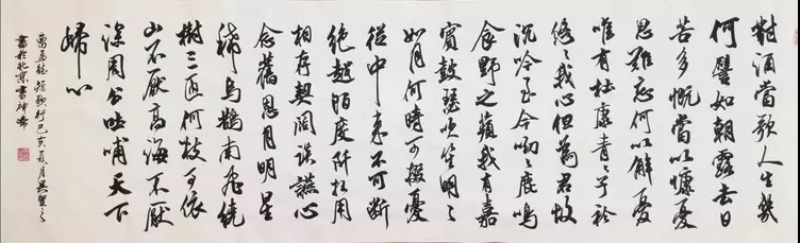 對酒當歌人生幾
何譬如朝露去日
苦多慨當以慷憂
思難忘何以解憂
唯有杜康青〻子衿
悠〻我心但為君故
沉吟至今呦〻鹿鳴
食野之蘋我有嘉
賓鼓瑟吹笙明〻
如月何時可掇憂
從中來不可斷
絕越陌度阡枉用
相存契闊談讌心
念舊恩月明星
稀烏鵲南飛繞
樹三匝何枝可依
山不厭高海不厭
深周公吐哺天下
歸心
曹孟德短歌行己亥夏月
書於北京